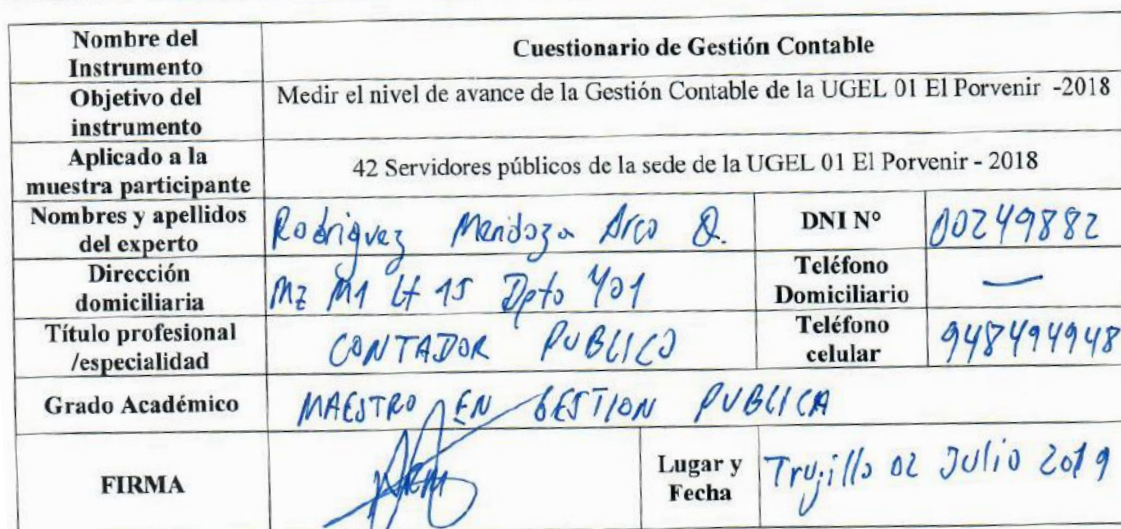 Nombre del Instrumento
Cuestionario de Gestión Contable
Objetivo del instrumento
Medir el nivel de avance de la Gestión Contable de la UGEL 01 El Porvenir -2018
Aplicado a la muestra participante
42 Servidores públicos de la sede de la UGEL 01 El Porvenir - 2018
Nombres y apellidos del experto
Rodriguez Mendoza Arco Q.
DNI N°
00249882
Dirección domiciliaria
Mz M1 Lt 15 Dpto 401
Teléfono Domiciliario
—
Título profesional /especialidad
CONTADOR PUBLICO
Teléfono celular
948494948
Grado Académico
MAESTRO EN GESTION PUBLICA
FIRMA
Lugar y Fecha
Trujillo 02 Julio 2019